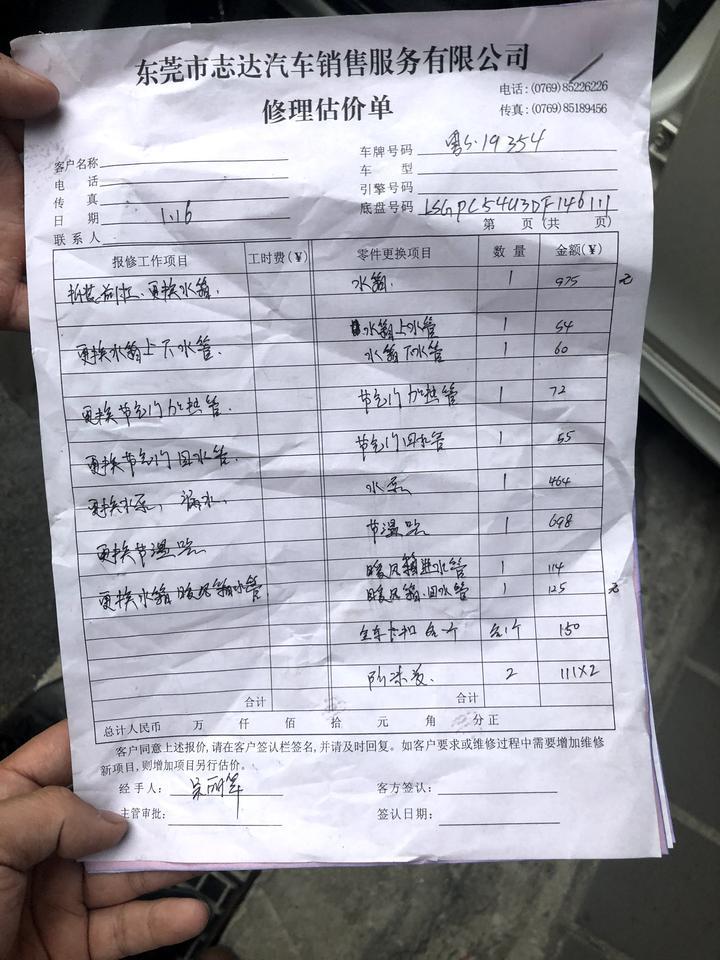 东莞市志达汽车销售服务有限公司
修理估价单
电话:(0769)85226226
传真:(0769)85189456
客户名称
电话
传真
日期 1.16
联系人
车牌号码 粤S·19354
车型
引擎号码
底盘号码 LSGPC54U3DF146111
第 页(共 页)
报修工作项目 工时费(¥) 零件更换项目 数量 金额(¥)
更换水箱. 水箱. 1 975 元
水箱上水管 1 54
更换水箱上下水管. 水箱下水管 1 60
更换节气门加热管. 节气门加热管 1 72
更换节气门回水管. 节气门回水管 1 55
更换水泵, 漏水, 水泵 1 464
更换节温器 节温器 1 698
暖风箱进水管 1 114
更换水箱暖风箱水管 暖风箱.回水管 1 125 元
全车卡扣 150
防冻液. 2 111×2
合计 合计
总计人民币 万 仟 佰 拾 元 角 分正
客户同意上述报价,请在客户签认栏签名,并请及时回复。如客户要求或维修过程中需要增加维修
新项目,则增加项目另行估价。
经手人:
客方签认:
主管审批:
签认日期: